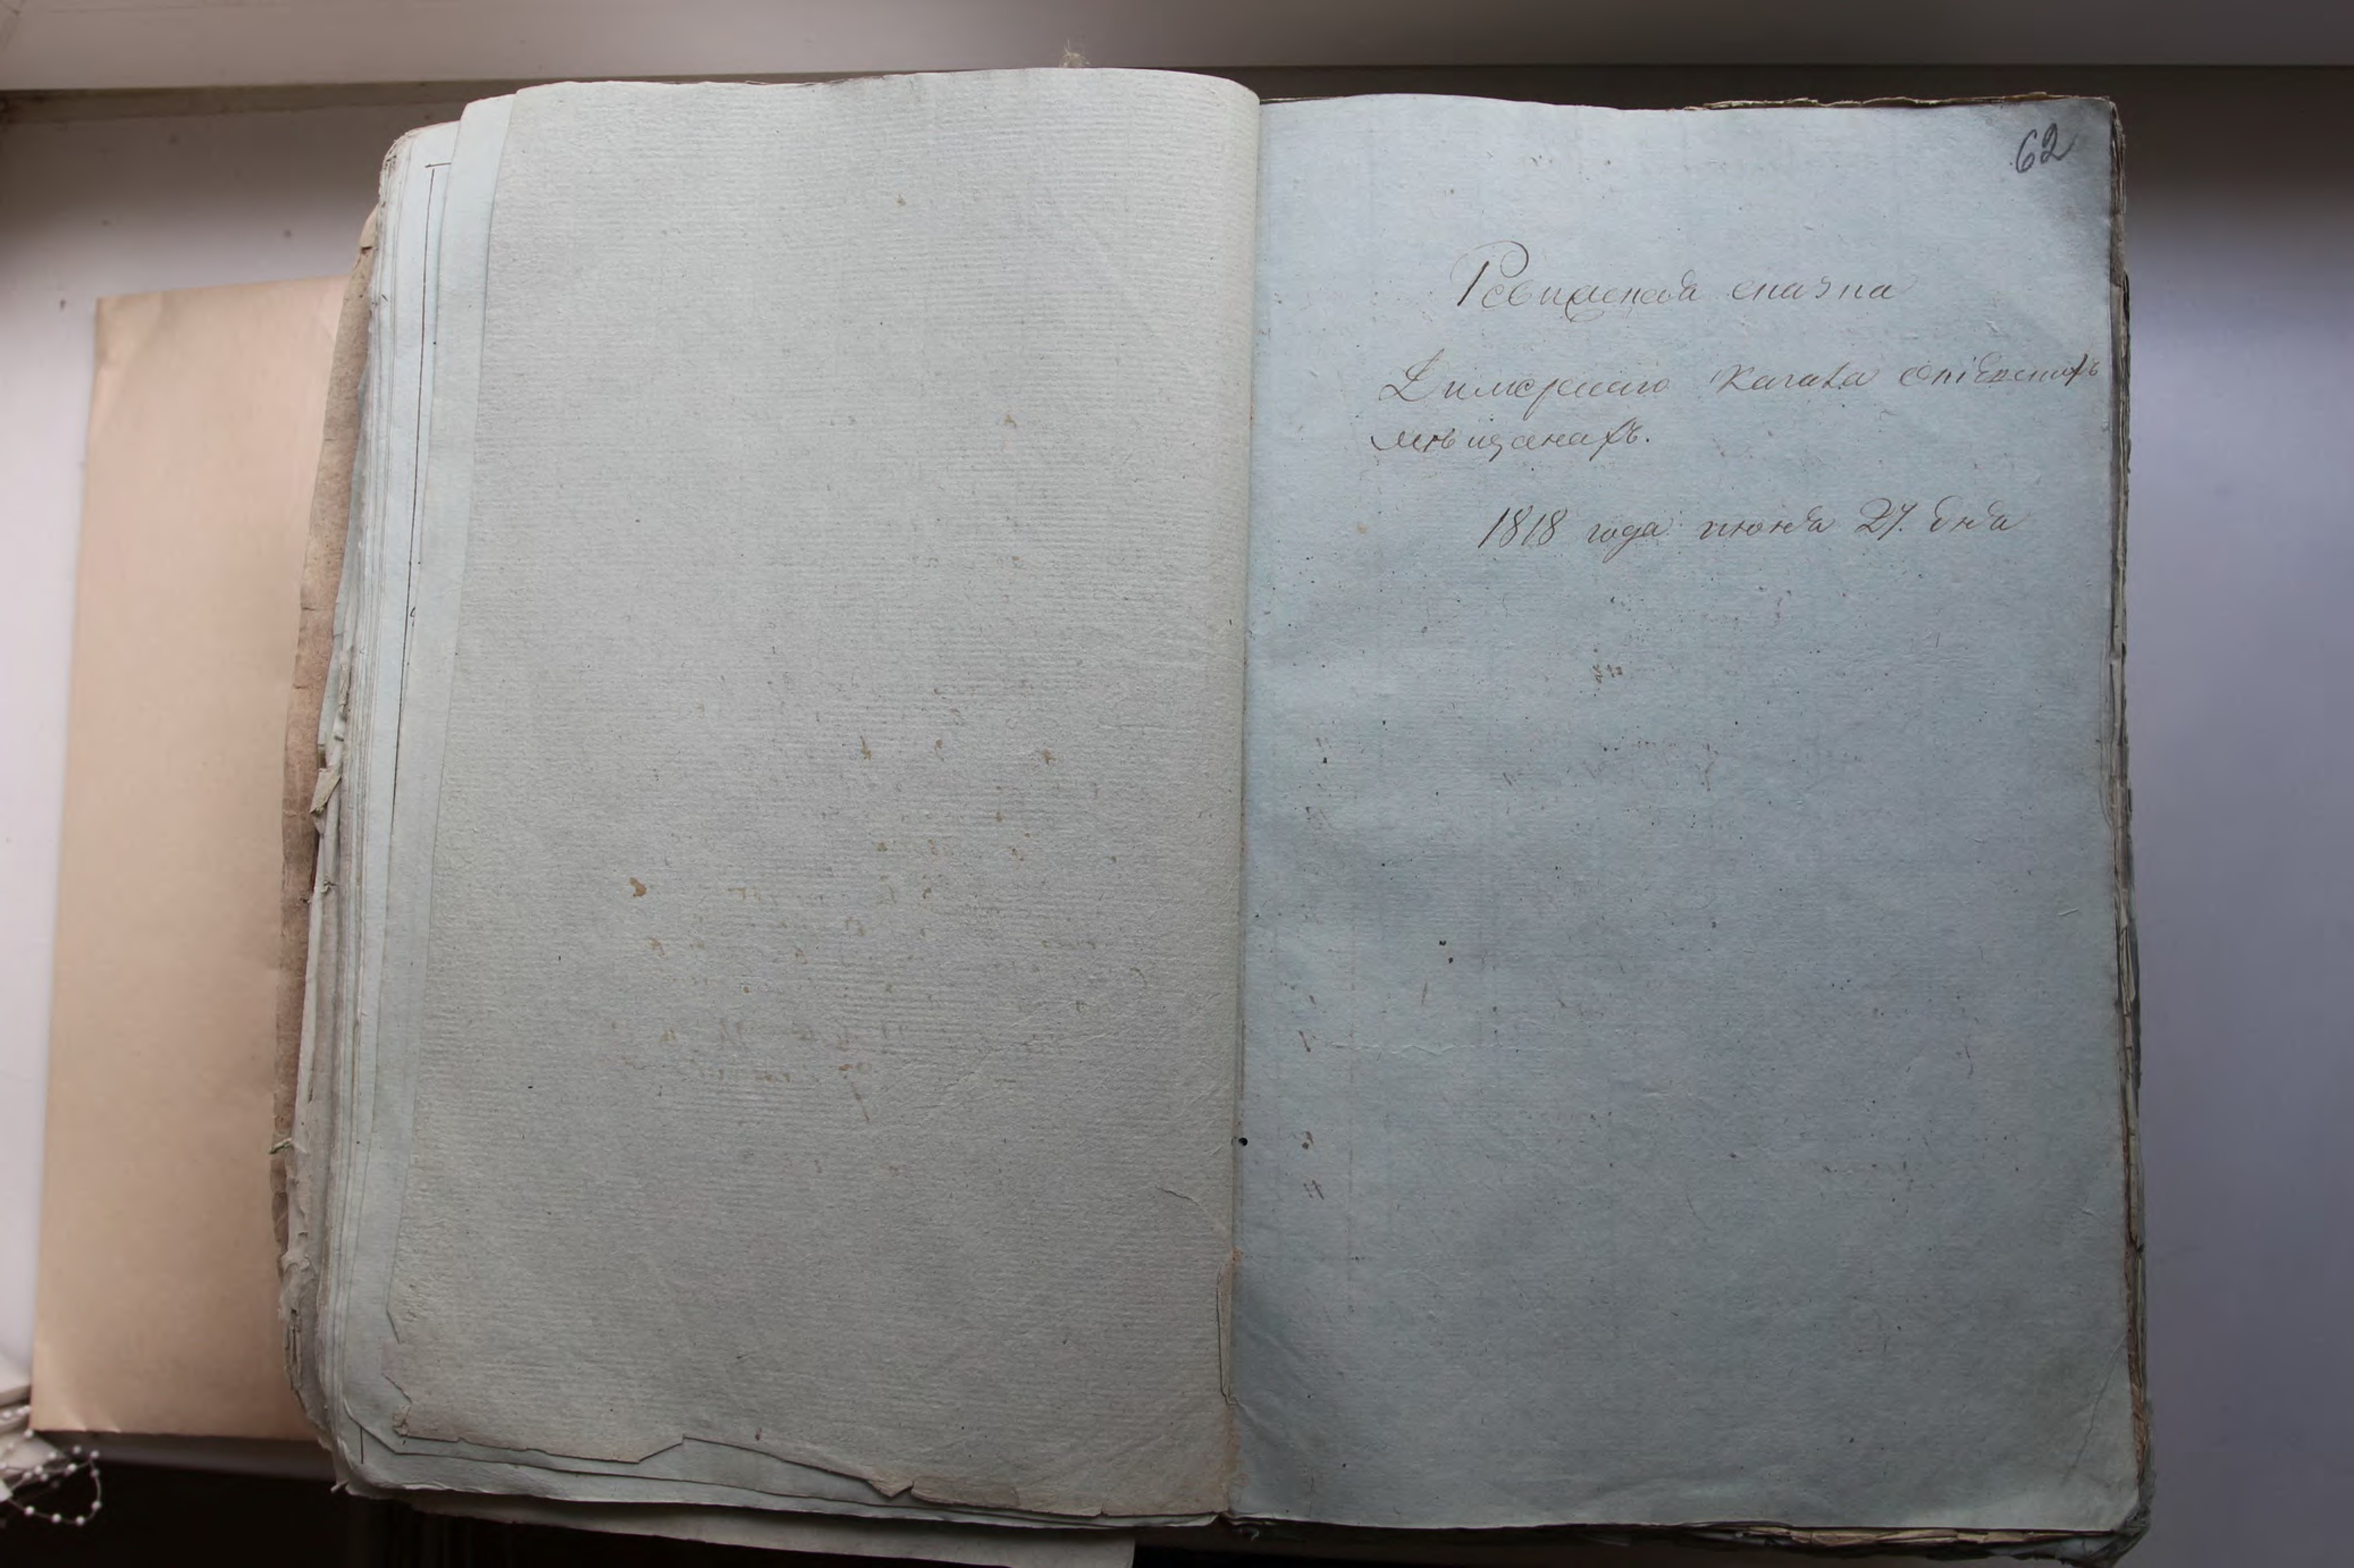 62
Ревизская сказка
Димерскаго Кагала о еврейскихъ
мѣщанахъ.
1818 года июня 27. дня